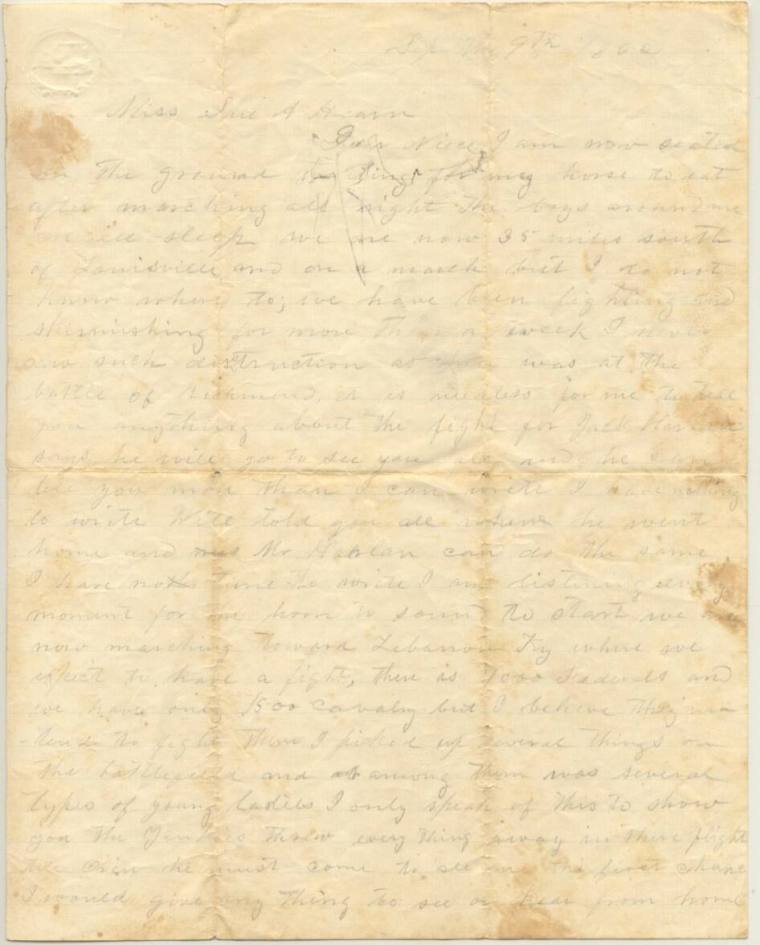 Sep the 9th 1862
Miss Sue A Hearn
Dear Niece I am now seated
on the ground for my horse to eat
after marching all night The boys around me
are all sleep we are now 35 miles south
of Louisville and on a march but I do not
know where to; we have been fighting and
skirmishing for more than a week I never
saw such distruction as there was at the
battle of Richmond, it is needless for me to tell
you anything about the fight for Jack
says he will go to see you all and he can
tell you more than I can write I have nothing
to write told you all when he went
home and Mr Harlan can do the same
I have not time to write I am listening every
momant for the horn to sound to start we are
now marching toward Lebanon Ky where we
expect to have a fight, there is 7000 Federals and
we have only 1500 cavalry but I believe they
to fight them I picked up several things on
the battlefield and among them was several
types of young ladies I only speak of this to show
you the Yankees threw every thing away in there flight
he must come to see me the first chance
I would give any thing to see or hear from home